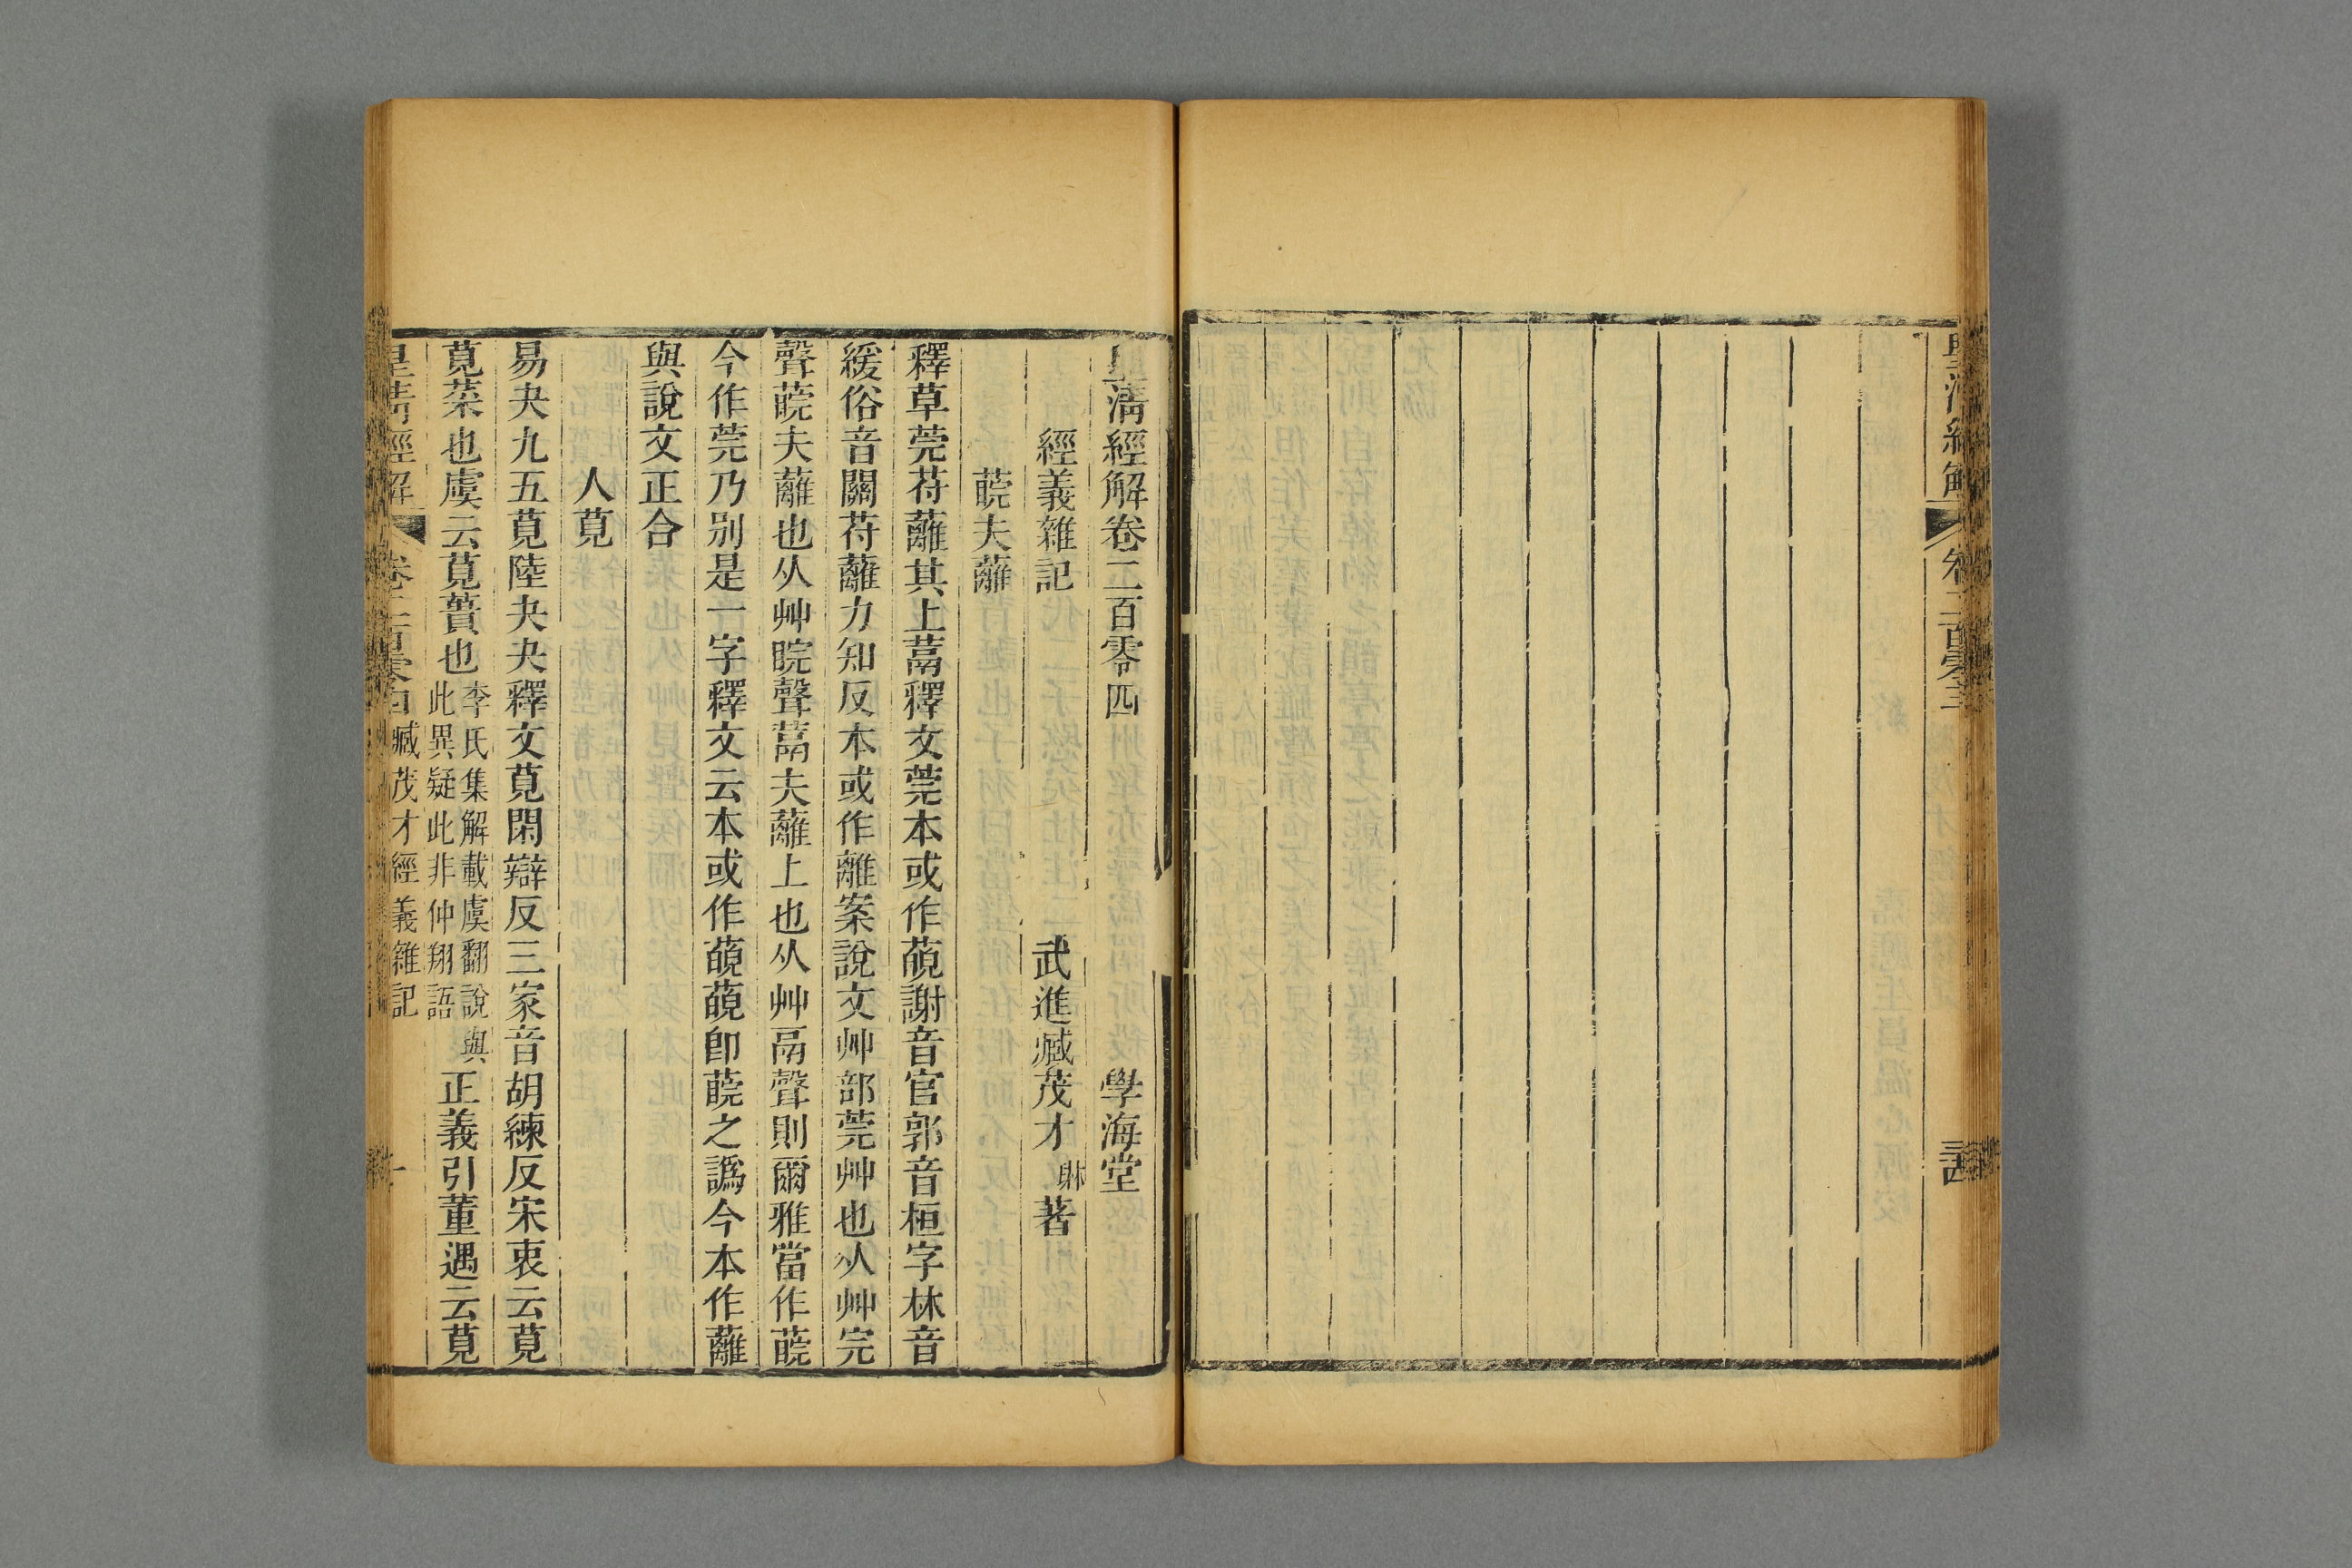 皇清經解
卷二百零三
皇清經解卷二百零四
學海堂
經義雜記
武進臧茂才琳著
藈夫蘺
釋草莞苻蘺其上蒚釋文莞本或作䓑謝音官郭音桓字林音
緩俗音關苻蘺力知反本或作離案說文艸部莞艸也从艸完
聲䓑夫蘺也从艸睆聲蒚夫蘺上也从艸鬲聲則爾雅當作
今作莞乃別是一字釋文云本或作即之譌今本作蘺
與說文正合
人莧
易夬九五莧陸夬夬釋文莧閑辯反三家音胡練反宋衷云莧
莧菜也虞云莧蕢也李氏集解載虞翻說與此異疑此非仲翔語正義引董遇云莧
皇清經解
卷二百零四
臧茂才經義雜記
一